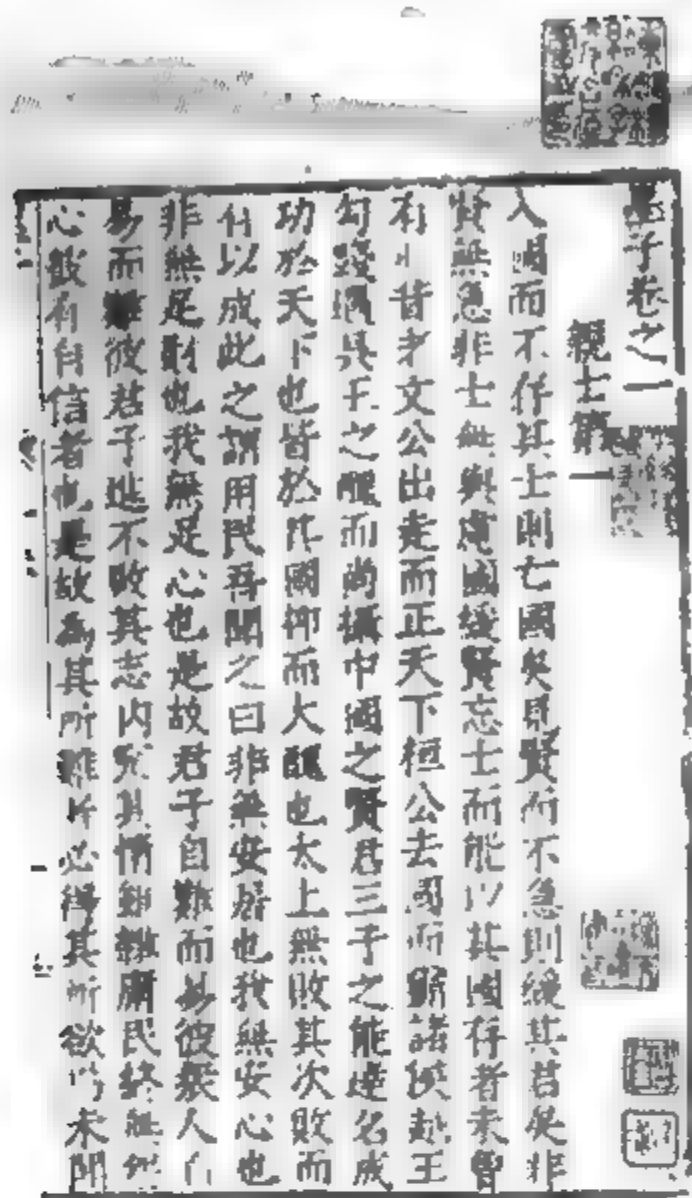 墨子卷之一
親士第一
入國而不存其士則亡國矣見賢而不急則緩其君矣非
賢無急非士無與慮國緩賢忘士而能以其國存者未曾
有也昔者文公出走而正天下桓公去國而霸諸侯越王
勾踐遇吳王之醜而尚攝中國之賢君三子之能達名成
功於天下也皆於其國抑而大醜也太上無敗其次敗而
有以成此之謂用民吾聞之曰非無安居也我無安心也
非無足財也我無足心也是故君子自難而易彼衆人自
易而難彼君子進不敗其志內究其情雖雜庸民終無怨
心彼有自信者也是故為其所難者必得其所欲焉未聞